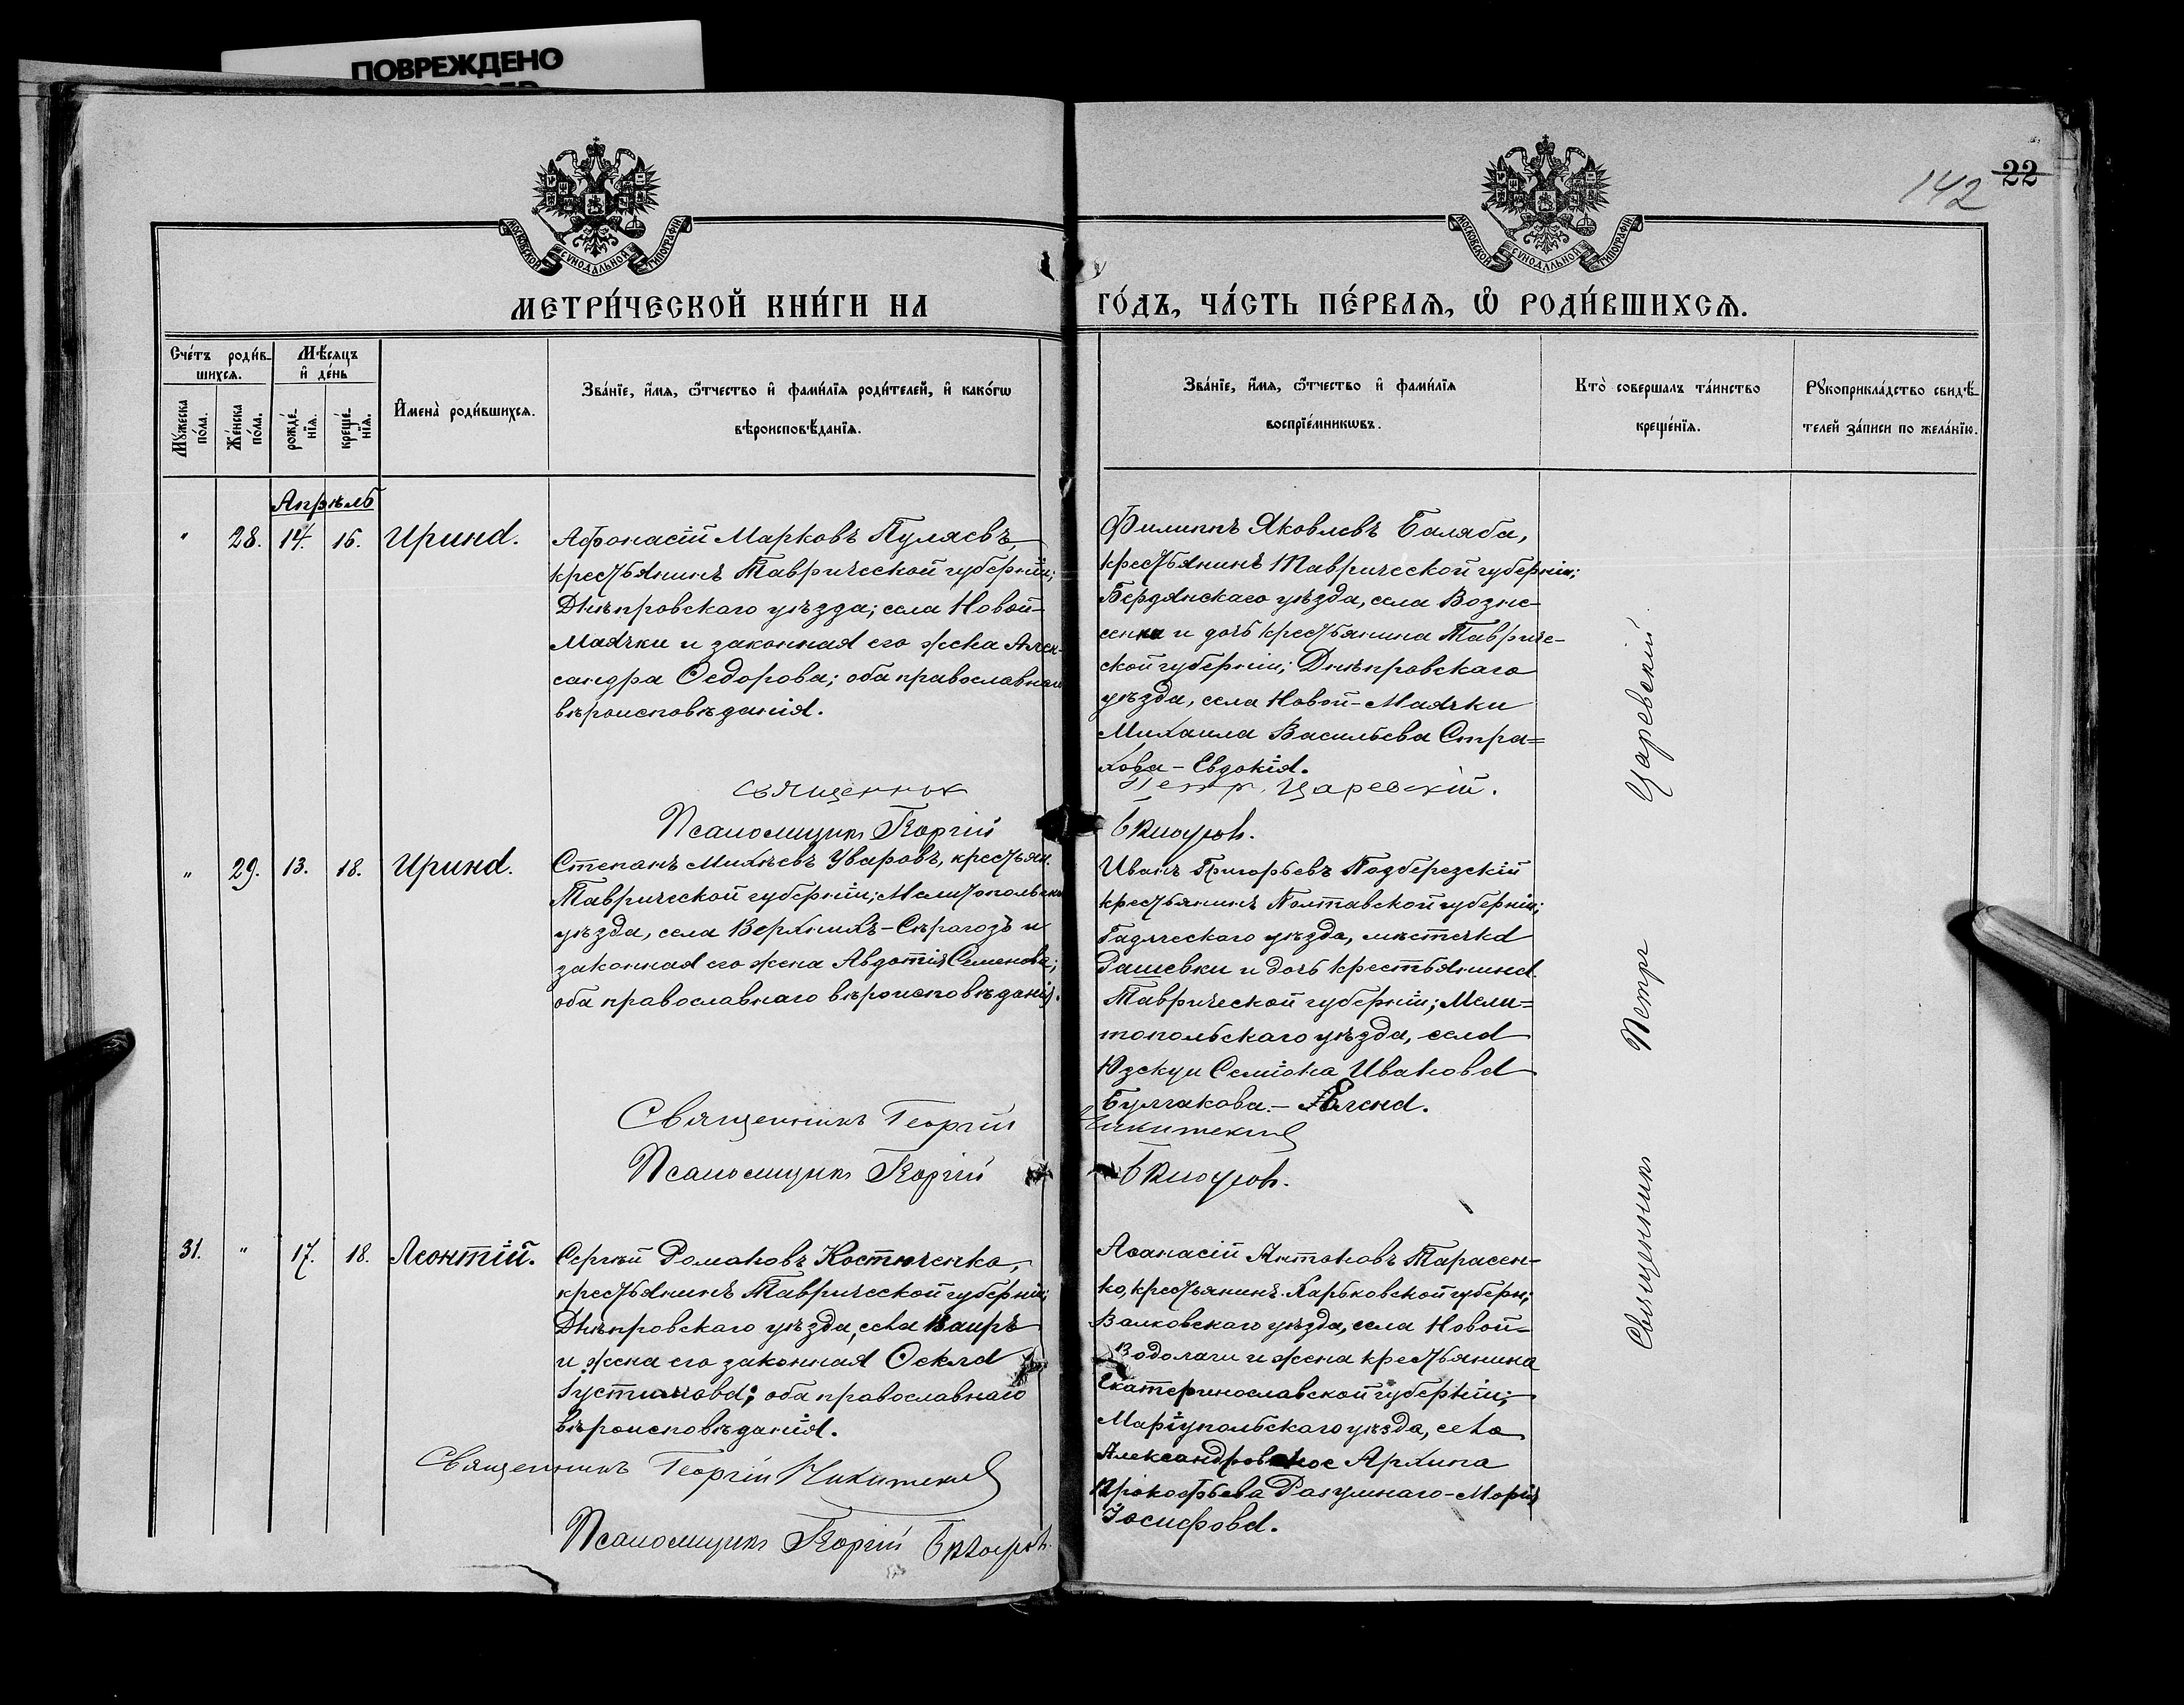 ПОВРЕЖДЕНО
142 22
МОСКОВСКОЙ СѴНОДАЛЬНОЙ ТИПОГРАФІИ
МОСКОВСКОЙ СѴНОДАЛЬНОЙ ТИПОГРАФІИ
МЕТРИ́ЧЕСКОЙ КНИ́ГИ НА
ГО́ДЪ, ЧА́СТЬ ПЕ́РВАѦ, Ѿ РОДИ́ВШИХСѦ.
Сче́тъ роди́в-
шихсѧ.
Мѣ́сяцъ
и҆ де́нь
Мꙋ́жеска по́ла.
Же́нска по́ла.
рожде́-
нїѧ.
креще́-
нїѧ.
И҆мена̀ роди́вшихсѧ.
Зва́нїе, и҆́мѧ, ѻ҆́тчество и҆ фами́лїѧ роди́телей, и҆ како́гѡ
вѣроисповѣ́данїѧ.
Зва́нїе, и҆́мѧ, ѻ҆́тчество и҆ фами́лїѧ
воспрїе́мникѡвъ.
Кто̀ совершалъ та́инство
креще́нїѧ.
Рꙋкоприкла́дство свидѣ́-
телей за́писи по жела́нїю.
Апрѣль
" 28. 14. 16. Ирина.
Афонасій Марковъ Пуляевъ,
крестьянинъ Таврической губерніи;
Днѣпровскаго уѣзда; села Новой-
Маячки и законная его жена Алек-
сандра Ѳедорова; оба православнаго
вѣроисповѣданія.
Священник
Псаломщикъ Георгій
Филиппъ Яковлевъ Баляба,
крестьянинъ Таврической губерніи;
Бердянскаго уѣзда, села Возне-
сенки и дочь крестьянина Тавриче-
ской губерніи; Днѣпровскаго
уѣзда, села Новой-Маячки
Михаила Васильева Стра=
хова - Евдокія.
Петр Царевскій.
" 29. 13. 18. Ирина.
Степанъ Михѣевъ Уваровъ, крестьян.
Таврической губерніи; Мелитопольска
уѣзда, села Верхнихъ-Сѣрагозъ и
законная его жена Авдотія Семенова;
оба православнаго вѣроисповѣданія.
Священникъ Георгій
Псаломщикъ Георгій
Иванъ Григорьевъ Подберезскій
крестьянинъ Полтавской губерніи;
Гадячскаго уѣзда, мѣстечка
Рашевки и дочь крестьянина
Таврической губерніи; Мели=
топольскаго уѣзда, села
Юзкуи Семіона Иванова
Булгакова. - Елена.
31. " 17. 18. Леонтій.
Сергѣй Романовъ Костюченко,
крестьянинъ Таврической губерніи;
Днѣпровскаго уѣзда, села Каиръ
и жена его законная Ѳекла
Іустинова; оба православнаго
вѣроисповѣданія.
Священникъ Георгій
Псаломщикъ Георгій
Аѳанасій Антоновъ Тарасен-
ко, крестьянинъ Харьковской губерн;
Валковскаго уѣзда, села Новой-
Водолаги и жена крестьянина
Екатеринославской губерніи;
Маріупольскаго уѣзда, села
Александровское Архипа
Прокофьева Разумнаго - Марія
Іосифова.
Священникъ Петръ Царевскій